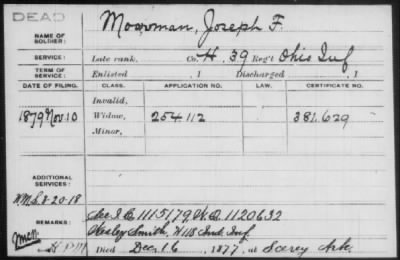 DEAD
NAME OF SOLDIER: Moorman, Joseph F.
SERVICE: Late rank, Co. H, 39 Reg't Ohio Inf
TERM OF SERVICE: Enlisted , 1 Discharged , 1
DATE OF FILING. CLASS. APPLICATION NO. LAW. CERTIFICATE NO.
Invalid,
1879 Nov. 10 Widow, 254112 381.629
Minor,
ADDITIONAL SERVICES:
8-20-18
REMARKS: 1115179 1120632
Wesley Smith, Ind. Inf.
Died Dec. 16, 1877, at Searcy Ark.